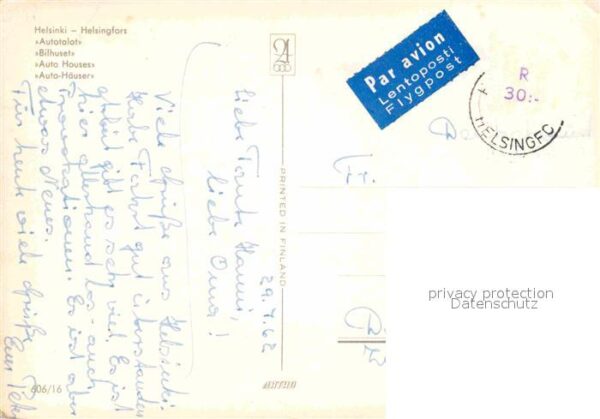 Helsinki – Helsingfors
»Autotalot»
»Bilhuset»
»Auto Houses»
»Auto-Häuser»
Par avion
Lentoposti
Flygpost
R
30:-
HELSINGFO
29.7.62
Liebe Tante Hanni,
liebe Oma!
Viele Grüße aus Helsinki.
Habe Fahrt gut überstanden
gibt es sehr viel. Es ist
hier allerhand los - auch
Es ist aber
etwas Neues.
Für heute viele Grüße
Euer Peter
PRINTED IN FINLAND
606/16
privacy protection
Datenschutz